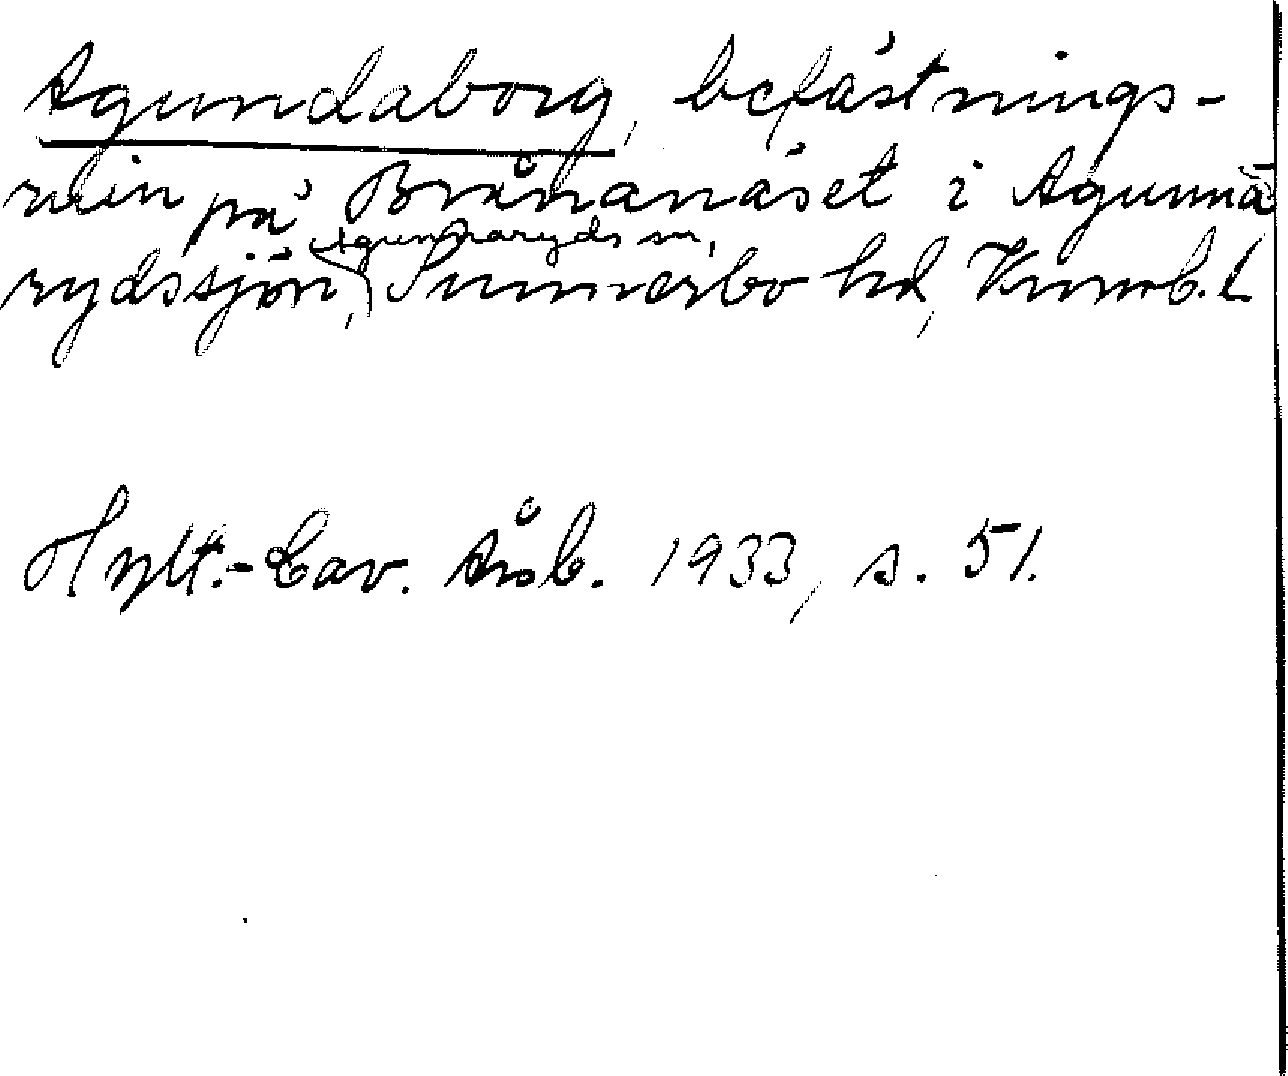 Agundaborg, befästnings-
ruin på Brånanäset i Agunna
rydssjön, Agunnaryds sn,
Sunnerbo hd, Kronob. l
Hylt.-Cav. Årsb. 1933, s. 51.